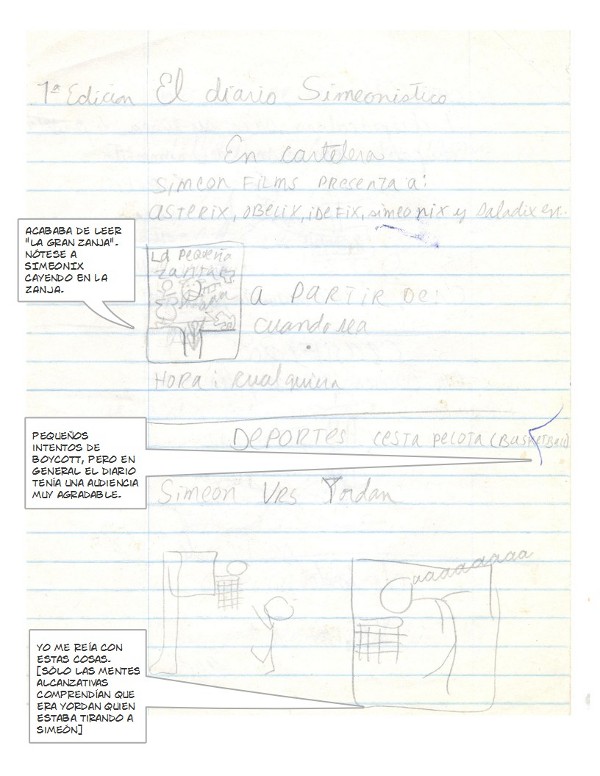 1ª Edición El diario Simeonistico
En cartelera
Simeon Films presenta a:
asterix, obelix, idefix, simeonix y Saladix en:
ACABABA DE LEER
"LA GRAN ZANJA".
NÓTESE A
SIMEONIX
CAYENDO EN LA
ZANJA.
La pequeña
zanja
a partir de:
cuando sea
Hora: cualquiera
Deportes cesta pelota (Busketball)
PEQUEÑOS
INTENTOS DE
BOYCOTT, PERO EN
GENERAL EL DIARIO
TENÍA UNA AUDIENCIA
MUY AGRADABLE.
Simeon Vrs Yordan
aaaaaaaaa
YO ME REÍA CON
ESTAS COSAS.
[SÓLO LAS MENTES
ALCANZATIVAS
COMPRENDÍAN QUE
ERA YORDAN QUIEN
ESTABA TIRANDO A
SIMEÓN]